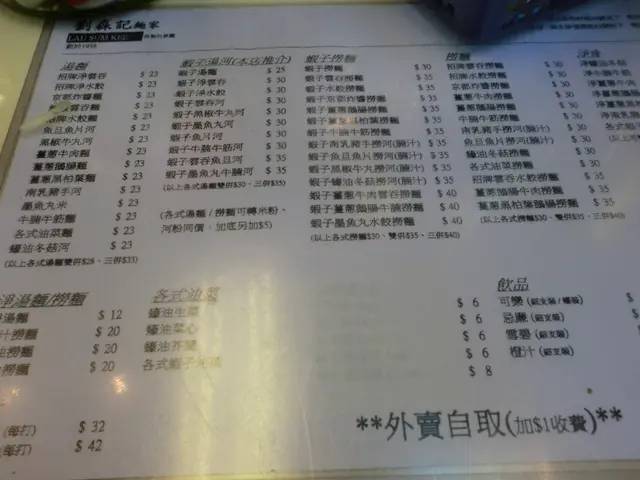 劉森記麵家
LAU SUM KEE
湯麵
招牌淨雲吞 $ 23
招牌淨水餃 $ 23
京都炸醬麵 $ 23
雲吞麵 $ 23
牌水餃麵 $ 23
魚旦魚片河 $ 23
黑椒牛丸河 $ 23
薑蔥牛肉麵 $ 23
薑蔥鵝腸麵 $ 23
薑蔥黑柏葉麵 $ 23
南乳豬手河 $ 23
墨魚丸米 $ 23
牛腩牛筋麵 $ 23
各式油菜麵 $ 23
蠔油冬菇河 $ 23
(以上各式湯麵雙併$28、三併$33)
蝦子湯河(本店推介)
蝦子湯麵 $ 25
蝦子淨雲吞 $ 30
蝦子淨水餃 $ 30
蝦子雲吞河 $ 30
蝦子黑椒牛丸河 $ 30
蝦子墨魚丸河 $ 30
蝦子魚旦河 $ 30
蝦子牛腩牛筋河 $ 30
蝦子雲吞魚旦河 $ 35
蝦子墨魚丸牛腩河 $ 35
(以上各式湯麵雙併$30、三併$35)
(各式湯麵 / 撈麵可轉米粉、
河粉同價，加底另加$5)
蝦子撈麵
蝦子撈麵 $ 30
蝦子雲吞撈麵 $ 35
蝦子水餃撈麵 $ 35
蝦子京都炸醬撈麵 $ 35
蝦子薑蔥牛肉撈麵 $ 35
蝦子薑蔥鵝腸撈麵 $ 35
蝦子薑蔥黑柏撈麵 $ 35
蝦子牛腩牛筋撈麵 $ 35
蝦子南乳豬手撈河(腩汁) $ 35
蝦子魚旦魚片撈河(腩汁) $ 35
蝦子黑椒牛丸撈河(腩汁) $ 35
蝦子蠔油冬菇撈河(腩汁) $ 35
蝦子薑蔥牛肉雲吞撈麵 $ 40
蝦子薑蔥鵝腸牛腩撈麵 $ 40
蝦子墨魚丸水餃撈麵 $ 40
(以上各式撈麵$30、雙併$35、三併$40)
撈麵
招牌雲吞撈麵 $ 30
招牌水餃撈麵 $ 30
京都炸醬撈麵 $ 30
薑蔥牛肉撈麵 $ 30
薑蔥鵝腸撈麵 $ 30
牛腩牛筋撈麵 $ 30
南乳豬手撈河(腩汁) $ 30
魚旦魚片撈河(腩汁) $ 30
蠔油冬菇撈麵 $ 30
各式油菜撈麵 $ 30
招牌雲吞水餃撈麵 $ 35
薑蔥鵝腸牛肉撈麵 $ 35
薑蔥黑柏葉鵝腸撈麵 $ 35
(以上各式撈麵$30、雙併$35、三併$40)
淨
淨蠔油冬菇
淨牛腩牛筋
淨湯麵/撈麵
湯麵 $ 12
撈麵 $ 20
撈麵 $ 20
撈麵 $ 20
(每打) $ 32
(每打) $ 42
各式油菜
蠔油生菜
蠔油菜心
蠔油芥蘭
各式蝦子
$ 6
$ 6
$ 6
$ 6
$ 8
飲品
可樂 (鋁支裝 / 樽裝)
忌廉 (鋁支裝)
雪碧 (鋁支裝)
橙汁 (鋁支裝)
**外賣自取(加$1收費)**